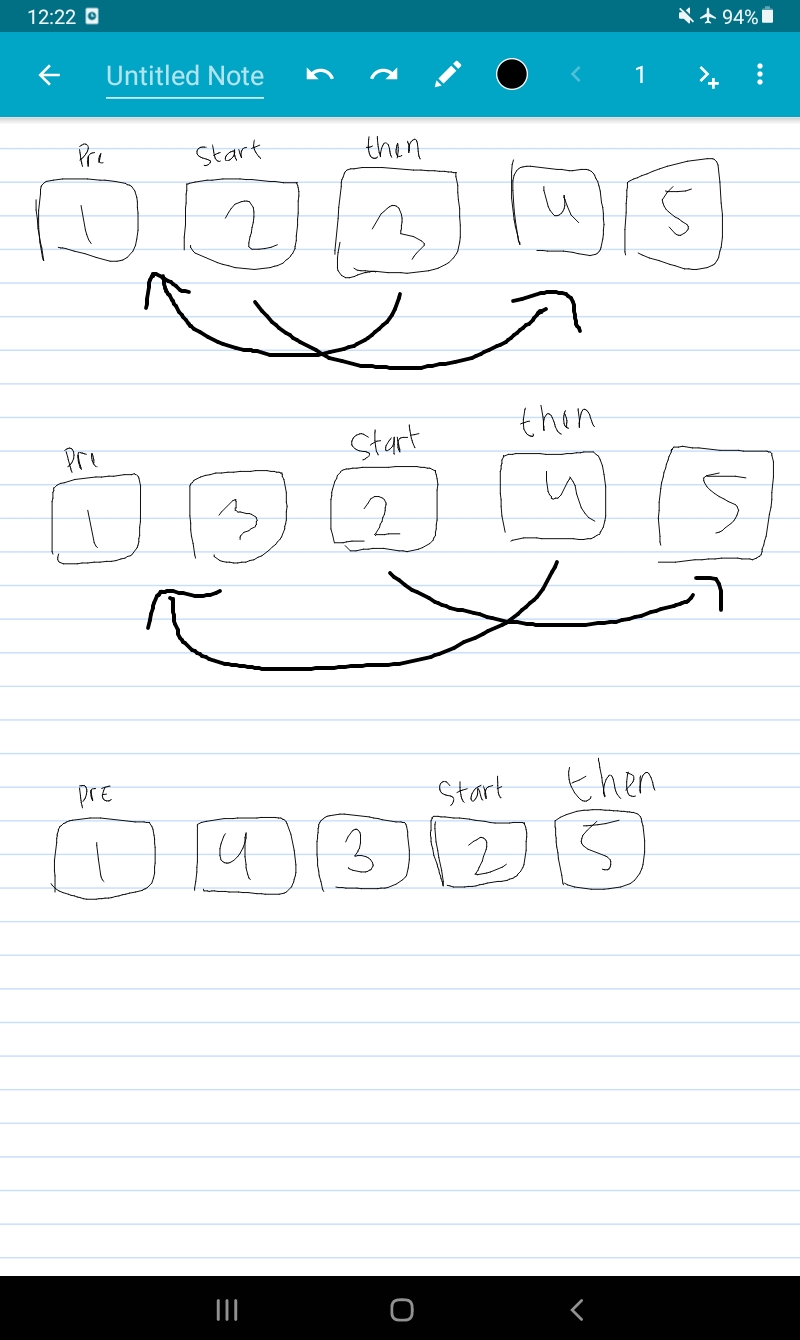 12:22 94%
Untitled Note 1
Pre Start then
1 2 3 4 5
Pre Start then
1 3 2 4 5
PrE Start then
1 4 3 2 5